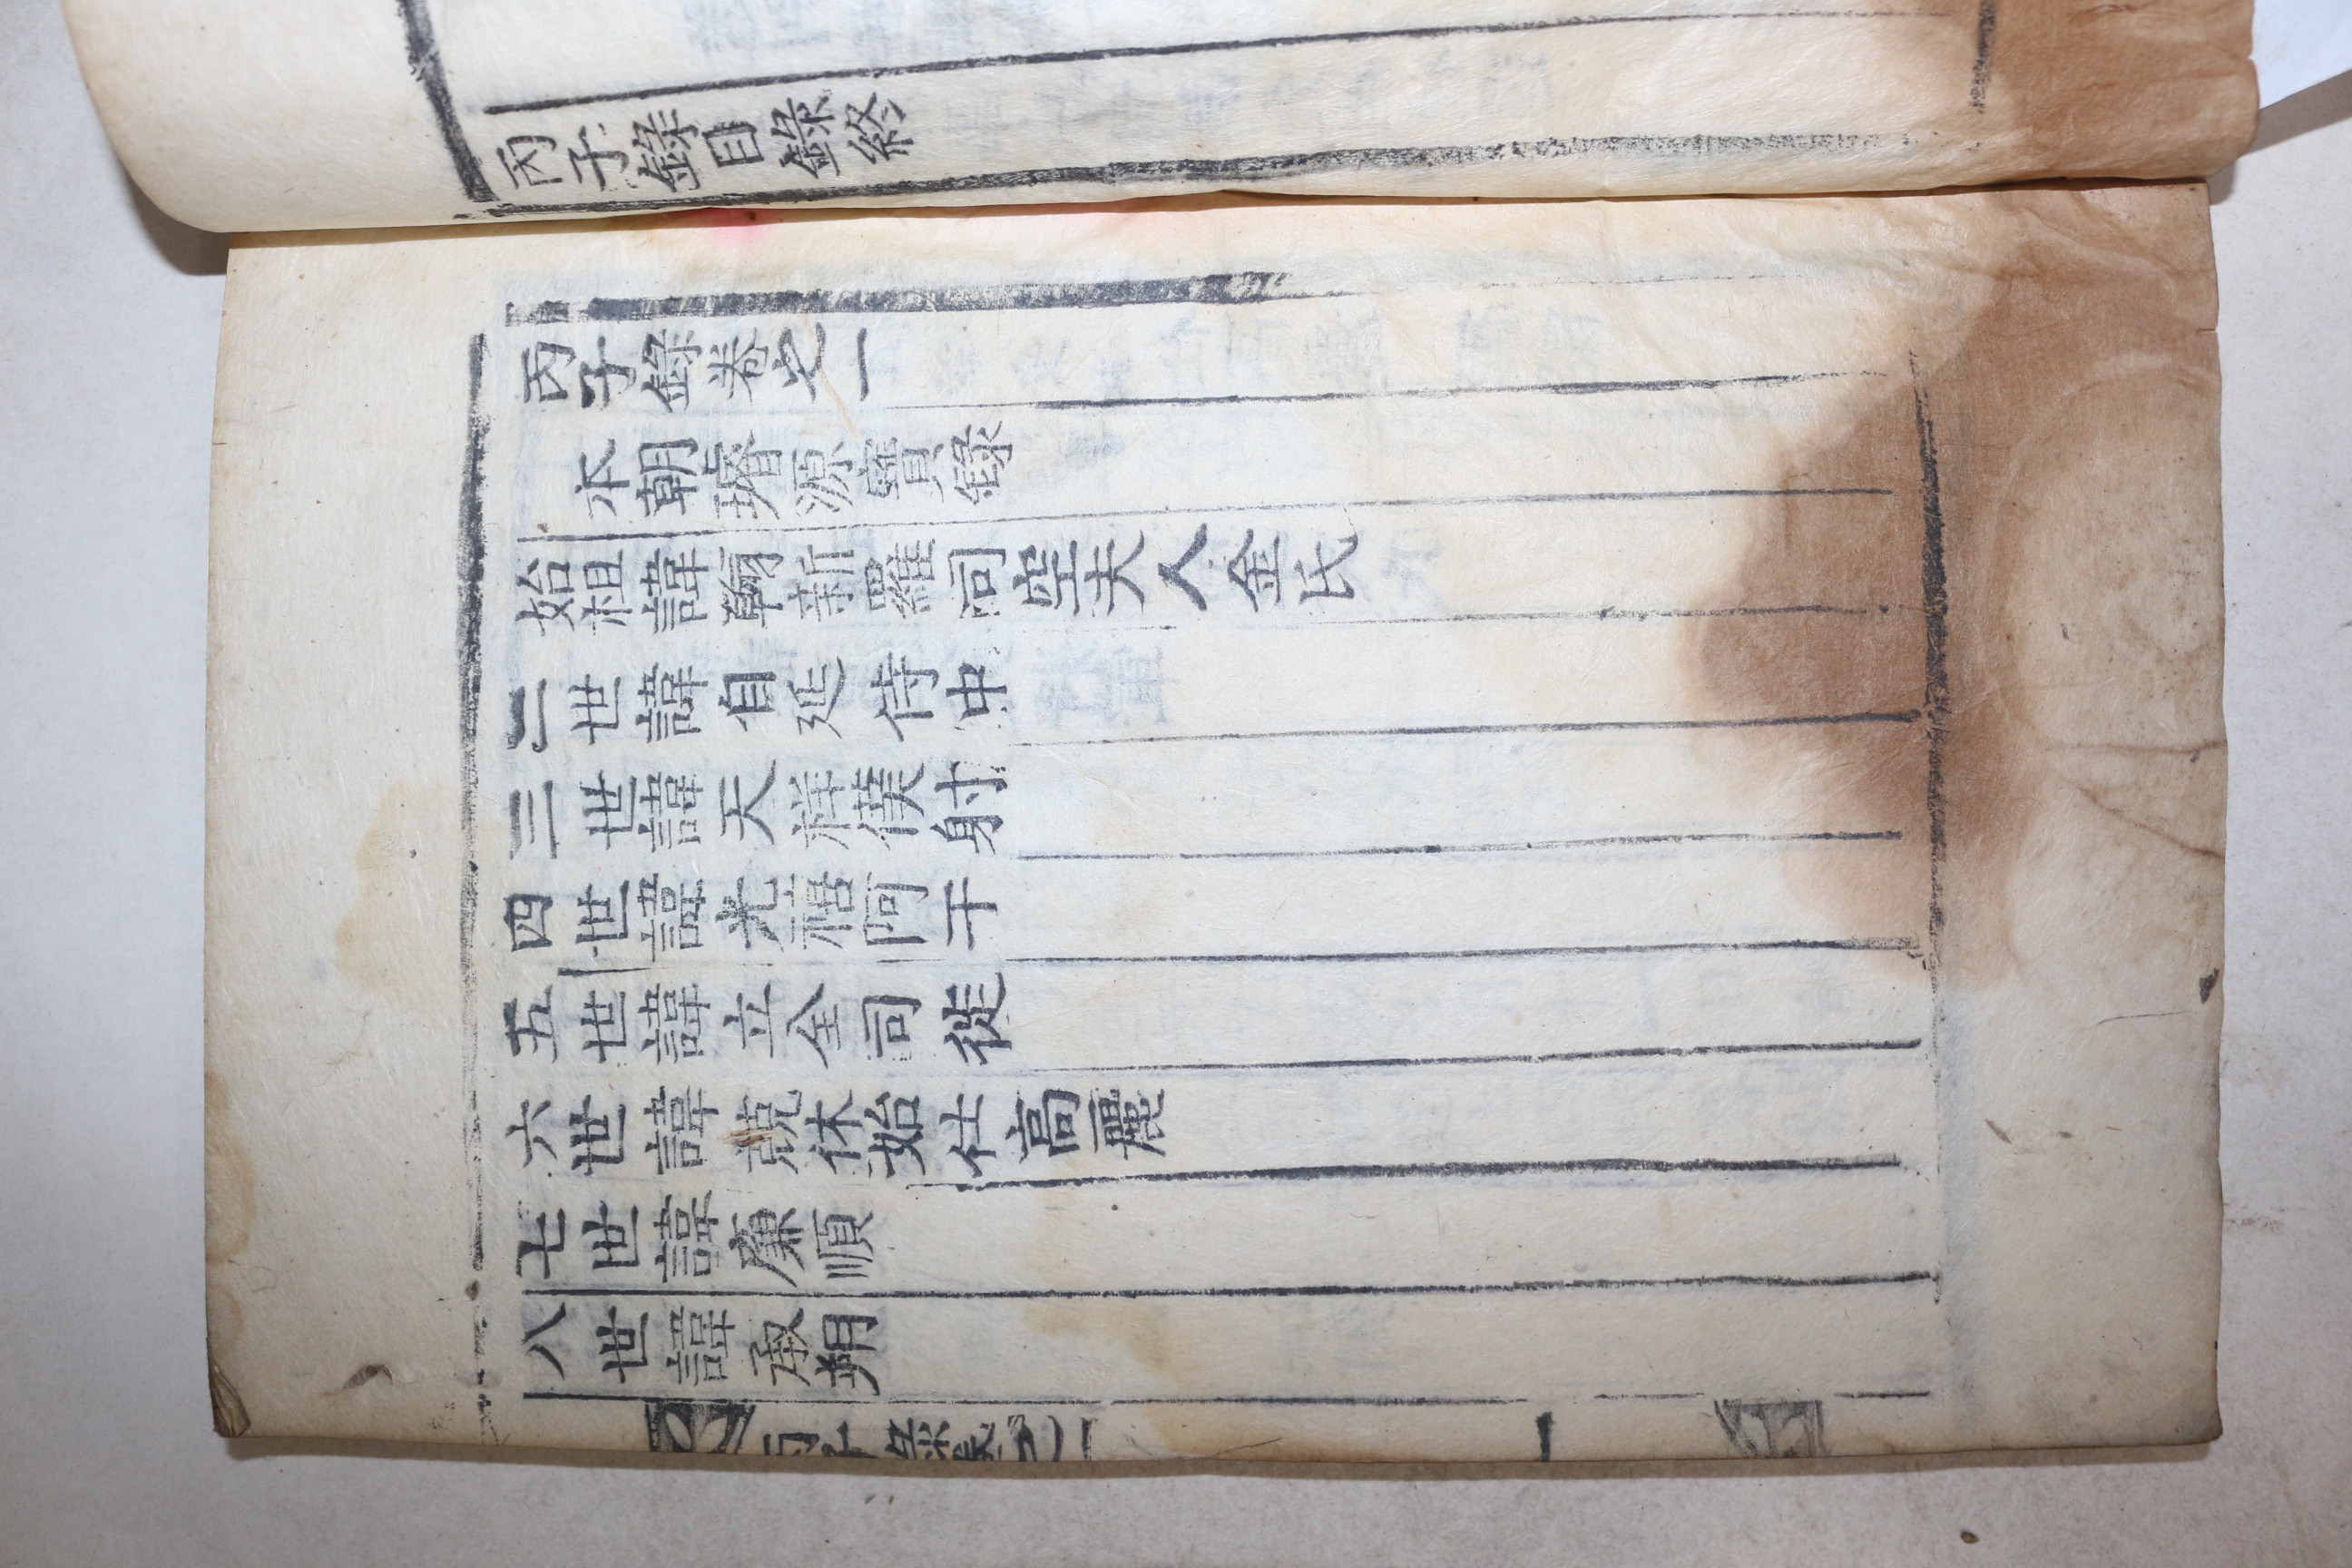 丙子錄目錄終
丙子錄卷之一
本朝璿源寶錄
始祖諱翰新羅司空夫人金氏
二世諱自延侍中
三世諱天祥僕射
四世諱光禧阿干
五世諱立全司徒
六世諱兢休始仕高麗
七世諱廉順
八世諱承朔
丙子錄卷之一